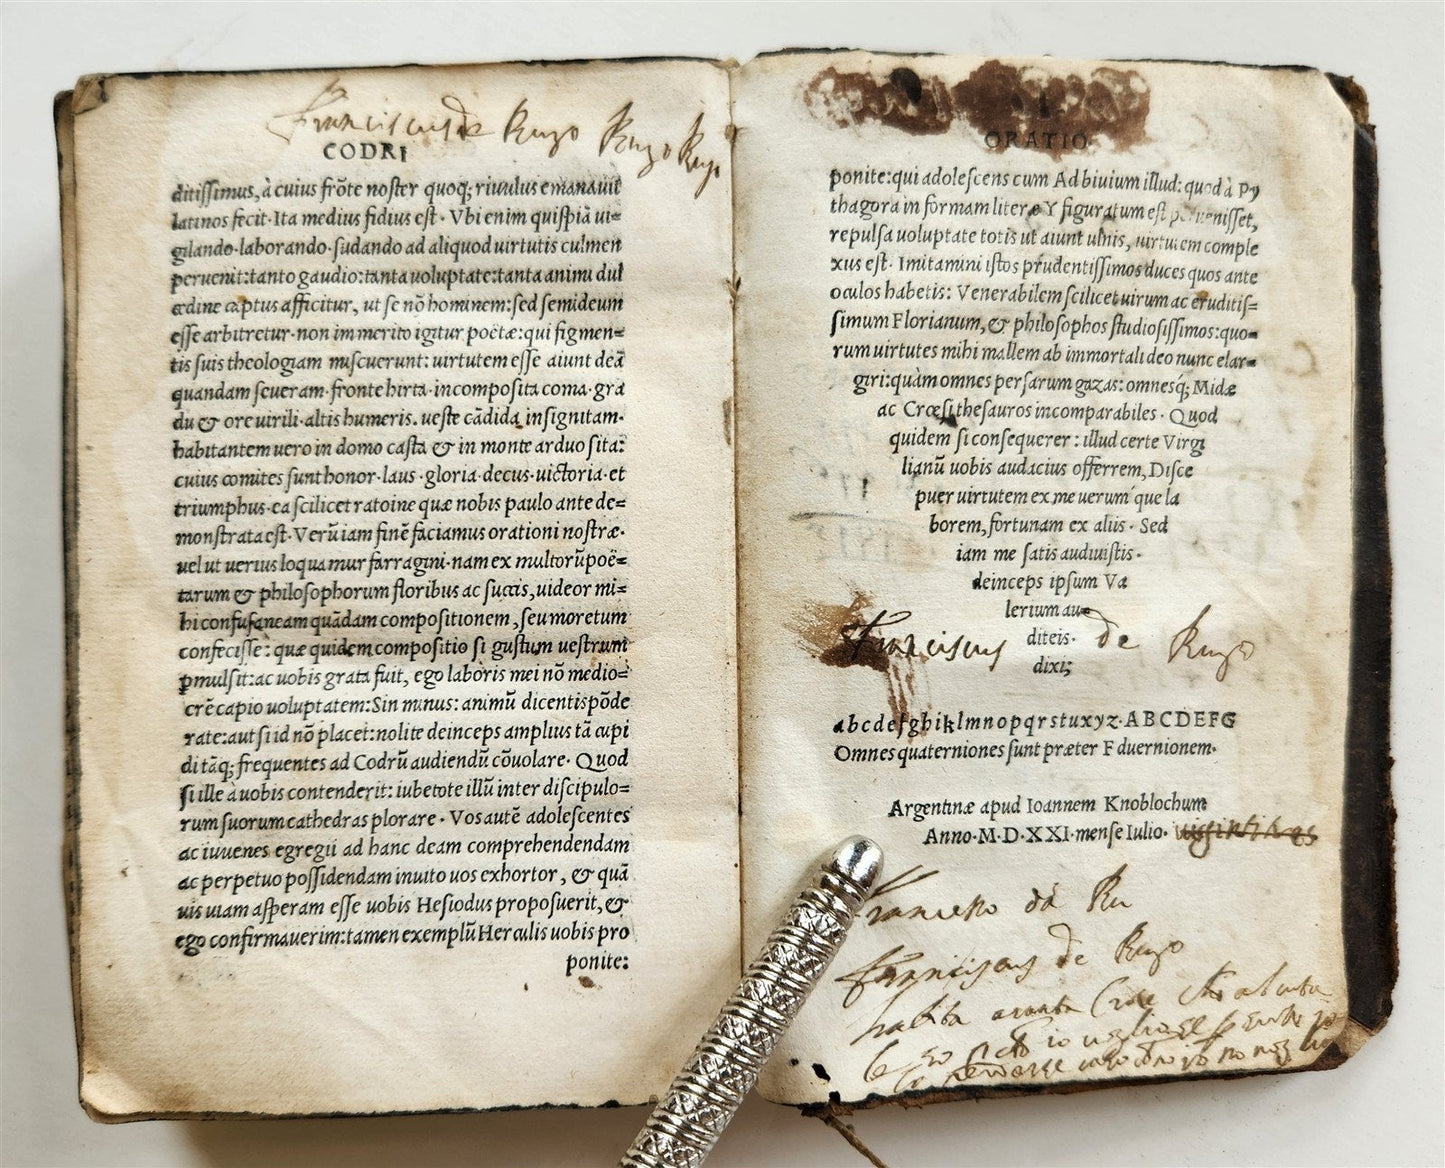 Franciscus de Ruzo Ruzo Ruzo
CODRI
ditissimus, à cuius frõte noster quoq; riuulus emanauit
latinos fecit· Ita medius fidius est · Vbi enim quispiã ui=
gilando· laborando· sudando ad aliquod uirtutis culmen
peruenit: tanto gaudio: tanta uoluptate: tanta animi dul
cędine captus afficitur, ut se nõ hominem: sed semideum
esse arbitretur· non immerito igitur poëtæ: qui figmen=
tis suis theologiam miscuerunt: uirtutem esse aiunt deã
quandam seueram· fronte hirta· incomposita coma· gra
du & ore uirili· altis humeris. ueste cãdida insignitam·
habitantem uero in domo casta & in monte arduo sita:
cuius comites sunt honor· laus · gloria· decus· uictoria· et
triumphus· ea scilicet ratoine quæ nobis paulo ante de=
monstrata est· Verũ iam finẽ faciamus orationi nostræ·
uel ut uerius loquamur farragini· nam ex multorũ poë=
tarum & philosophorum floribus ac succis, uideor mi=
hi confusaneam quãdam compositionem, seu moretum
confecisse: quæ quidem compositio si gustum uestrum
ꝑmulsit: ac uobis grata fuit, ego laboris mei nõ medio=
crẽ capio uoluptatem: Sin minus: animũ dicentis põde
rate: aut si id nõ placet: nolite deinceps amplius tã cupi
di tãq; frequentes ad Codrũ audiendũ cõuolare· Quod
si ille à uobis contenderit: iubetote illũ inter discipulo=
rum suorum cathedras plorare · Vos autẽ adolescentes
ac iuuenes egregii ad hanc deam comprehendendam
ac perpetuo possidendam inuito uos exhortor, & quã
uis uiam asperam esse uobis Hesiodus proposuerit, &
ego confirmauerim: tamen exemplũ Herculis uobis pro
ponite:
ORATIO
ponite: qui adolescens cum Ad biuium illud: quod à Py
thagora in formam literæ Y figuratum est peruenisset,
repulsa uoluptate totis ut aiunt ulnis, uirtutem comple
xus est· Imitamini istos prudentissimos duces quos ante
oculos habetis: Venerabilem scilicet uirum ac eruditis=
simum Florianum, & philosophos studiosissimos: quo=
rum uirtutes mihi mallem ab immortali deo nunc elar=
giri: quàm omnes persarum gazas: omnesq; Midæ
ac Crœsi thesauros incomparabiles · Quod
quidem si consequerer : illud certe Virgi
lianũ uobis audacius offerrem, Disce
puer uirtutem ex me uerum'que la
borem, fortunam ex aliis · Sed
iam me satis audiuistis ·
deinceps ipsum Va
lerium au=
diteis·
Franciscus de Ruzo
dixi;
abcdefghiklmnopqrstuxyz·ABCDEFG
Omnes quaterniones sunt præter F duernionem·
Argentinæ apud Ioannem Knoblochum
Anno·M·D·XXI·mense Iulio·
da Ru
Franciscus de Ruzo